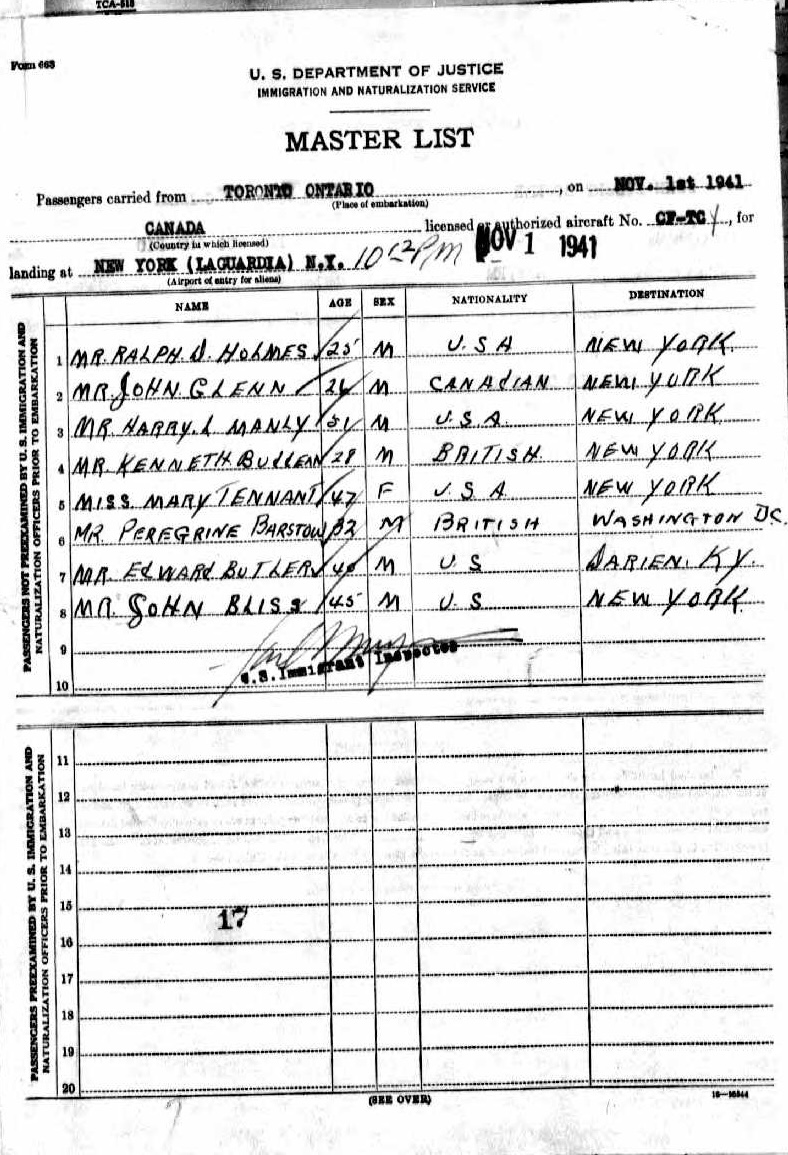 TCA-518
Form 663
U. S. DEPARTMENT OF JUSTICE
IMMIGRATION AND NATURALIZATION SERVICE
MASTER LIST
Passengers carried from TORONTO ONTARIO, on NOV. 1st 1941
(Place of embarkation)
CANADA licensed or authorized aircraft No. CF-TC, for
(Country in which licensed)
landing at NEW YORK (LAGUARDIA) N.Y. NOV 1 1941
(Airport of entry for aliens)
NAME AGE SEX NATIONALITY DESTINATION
PASSENGERS NOT PREEXAMINED BY U. S. IMMIGRATION AND
NATURALIZATION OFFICERS PRIOR TO EMBARKATION
1 MR. RALPH D. HOLMES 25 M U.S A NEW YORK.
2 MR JOHN GLENN 26 M CANADIAN NEW YORK
3 MR. HARRY. L MANLY 51 M U.S.A. NEW YORK
4 MR. KENNETH 28 M BRITISH. NEW YORK
5 MISS MARY TENNANT 47 F U.S A NEW YORK
6 MR. PEREGRINE BARSTOW 32 M BRITISH WASHINGTON DC.
7 MR. EDWARD BUTLER 40 M U.S DARIEN. KY.
8 MR. JOHN BLISS 45 M U.S NEW YORK.
9
U.S. Immigrant Inspector
10
PASSENGERS PREEXAMINED BY U. S. IMMIGRATION AND
NATURALIZATION OFFICERS PRIOR TO EMBARKATION
11
12
13
14
15
17
16
17
18
19
20
(SEE OVER) 16-16544